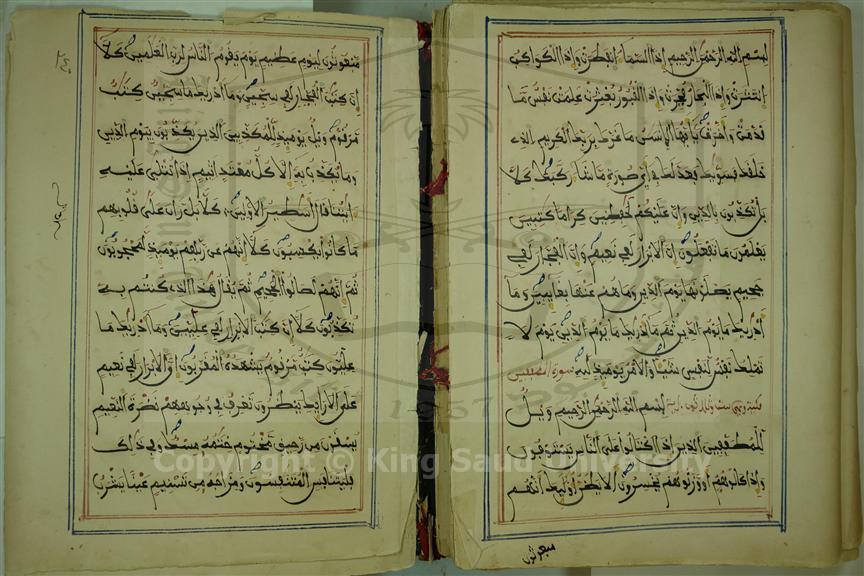 بسم الله الرحمن الرحيم إذا السماء انفطرت وإذا الكواكب
انتثرت وإذا البحار فجرت وإذا القبور بعثرت علمت نفس ما
قدمت وأخرت يأيها الإنسن ما غرك بربك الكريم الذي
خلقك فسويك فعدلك في أي صورة ما شاء ركبك كلا
بل تكذبون بالدين وإن عليكم لحفظين كراما كتبين
يعلمون ما تفعلون إن الأبرار لفي نعيم وإن الفجار لفي
جحيم يصلونها يوم الدين وما هم عنها بغايبين وما
أدريك ما يوم الدين ثم ما أدريك ما يوم الدين يوم لا
تملك نفس لنفس شيئا والأمر يومئذ لله سورة المطففين
مكية وهي ست وثلاثون آية بسم الله الرحمن الرحيم ويل
للمطففين الذين إذا اكتالوا على الناس يستوفون
وإذا كالوهم أو وزنوهم يخسرون ألا يظن أوليك أنهم
مبعوثون
مبعوثون ليوم عظيم يوم يقوم الناس لرب العلمين كلا
إن كتب الفجار لفي سجين وما أدريك ما سجين كتب
مرقوم ويل يومئذ للمكذبين الذين يكذبون بيوم الدين
وما يكذب به إلا كل معتد أثيم إذا تتلى عليه
ايتنا قال أسطير الأولين كلا بل ران على قلوبهم
ما كانوا يكسبون كلا إنهم عن ربهم يومئذ لمحجوبون
ثم إنهم لصالوا الجحيم ثم يقال هذا الذي كنتم به
تكذبون كلا إن كتب الأبرار لفي عليين وما أدريك ما
عليون كتب مرقوم يشهده المقربون إن الأبرار لفي نعيم
على الأرايك ينظرون تعرف في وجوههم نضرة النعيم
يسقون من رحيق مختوم ختمه مسك وفي ذلك
فليتنافس المتنفسون ومزاجه من تسنيم عينا يشرب
Copyright © King Saud University
1957